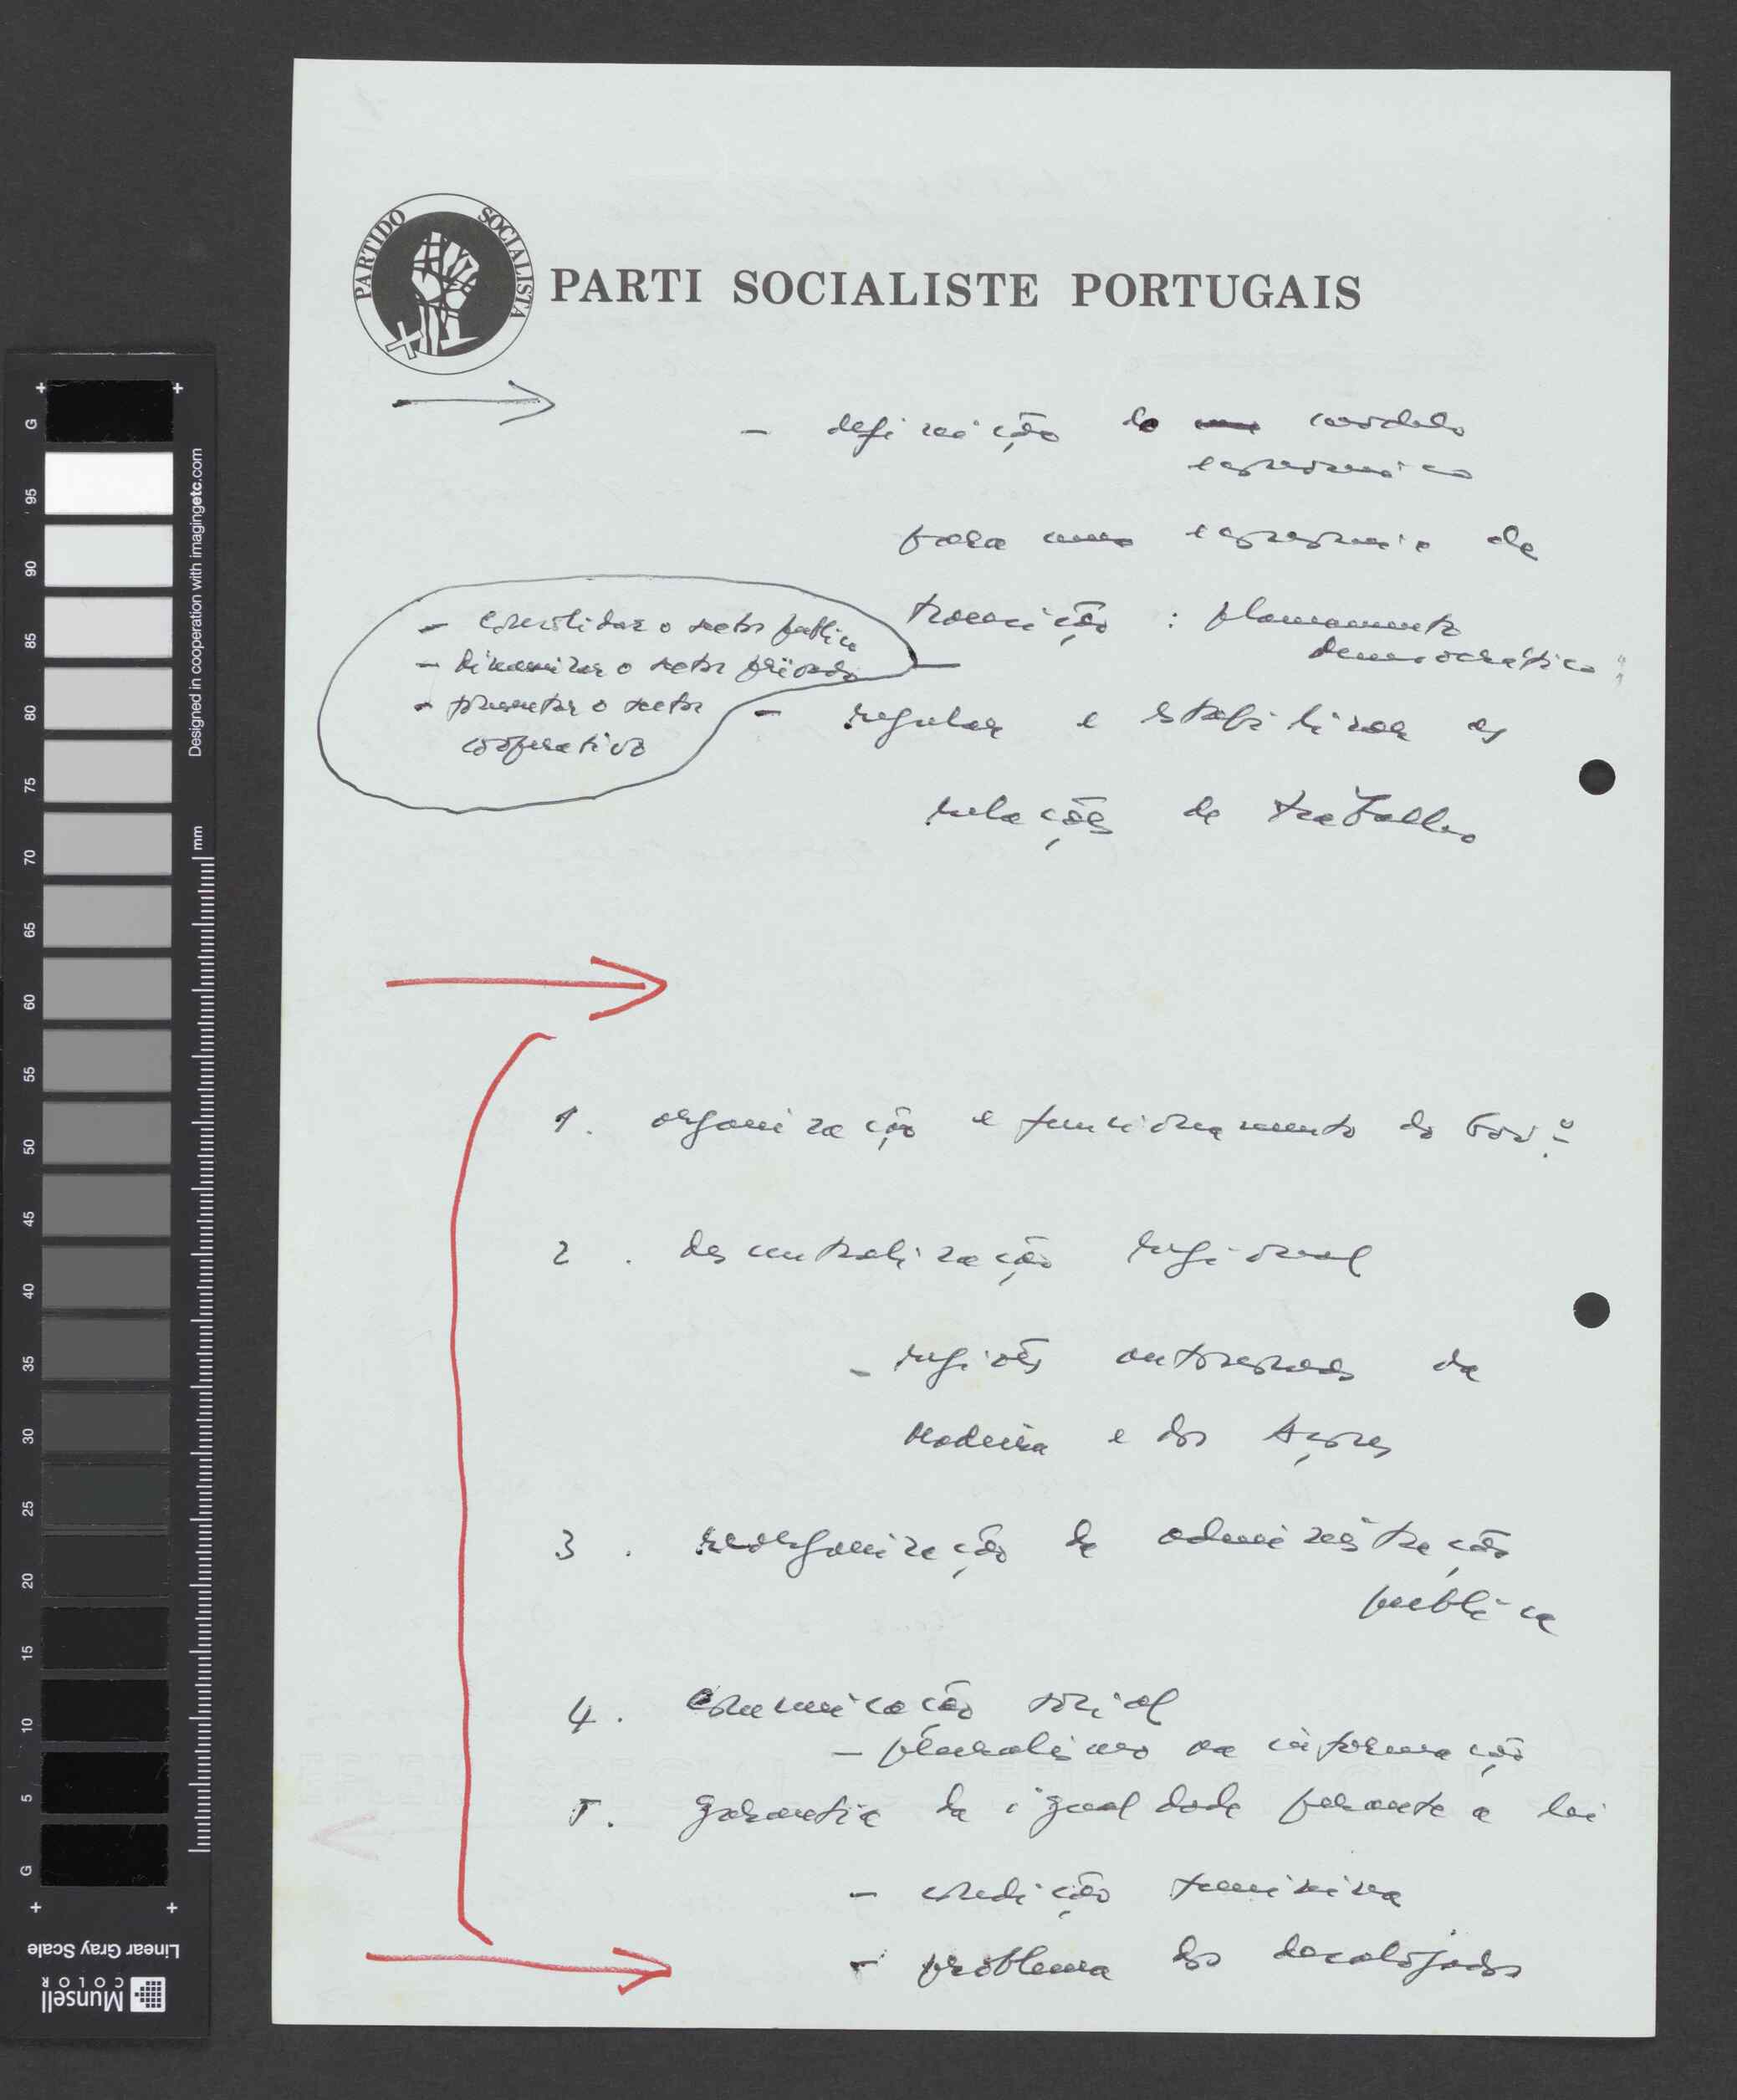 PARTIDO SOCIALISTA
PARTI SOCIALISTE PORTUGAIS
- definição do modelo
económico
para uma economia de
transição : planeamento
democrático ;
- consolidar o sector público
- dinamizar o sector privado
- fomentar o sector
cooperativo
- regular e estabilizar as
relações de trabalho
1. organização e funcionamento do Gov.º
2. descentralização regional
- regiões autónomas da
Madeira e dos Açores
3. reorganização da administração
pública
4. comunicação social
- pluralismo na informação
5. garantia da igualdade perante a lei
- condição feminina
- problema dos desalojados
Designed in cooperation with imagingetc.com
mm
G
95
90
85
80
75
70
65
60
55
50
45
40
35
30
25
20
15
10
5
G
Linear Gray Scale
Munsell
COLOR